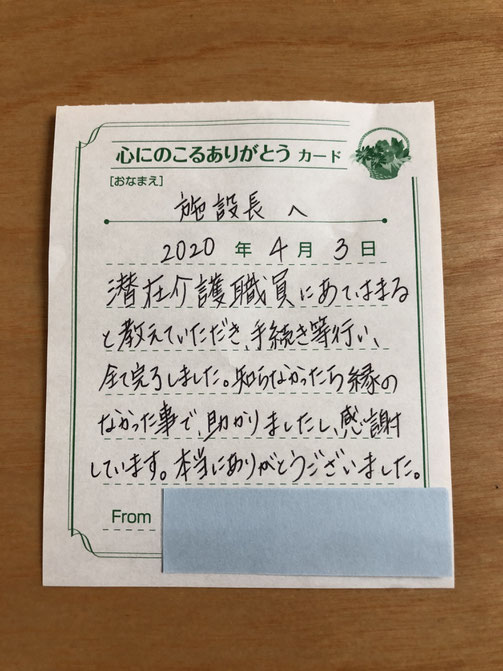 心にのこるありがとう カード
[おなまえ]
施設長 へ
2020 年 4 月 3 日
潜在介護職員にあてはまる
と教えていただき、手続き等行い、
全て完了しました。知らなかったら縁の
なかった事で、助かりましたし、感謝
しています。本当にありがとうございました。
From